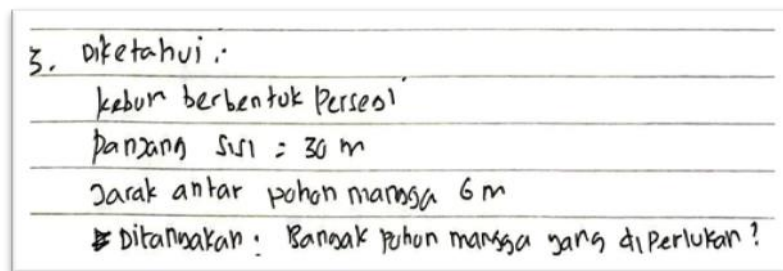 3. Diketahui :
kebun berbentuk Persegi
Panjang sisi = 30 m
Jarak antar pohon mangga 6 m
Ditanyakan : Banyak pohon mangga yang diperlukan ?